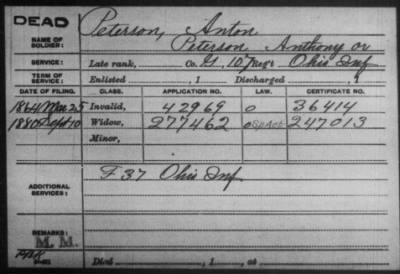 DEAD Peterson, Anton
NAME OF SOLDIER: Peterson Anthony or
SERVICE: Late rank, Co. G, 107 Reg't Ohio Inf
TERM OF SERVICE: Enlisted , 1 Discharged , 1
DATE OF FILING. CLASS. APPLICATION NO. LAW. CERTIFICATE NO.
1864 Mar 25 Invalid, 42969 0 36414
1880 Sept 10 Widow, 277462 0 Sp Act 247013
Minor,
ADDITIONAL SERVICES: F 37 Ohio Inf
REMARKS:
M. M.
Died , 1 , at